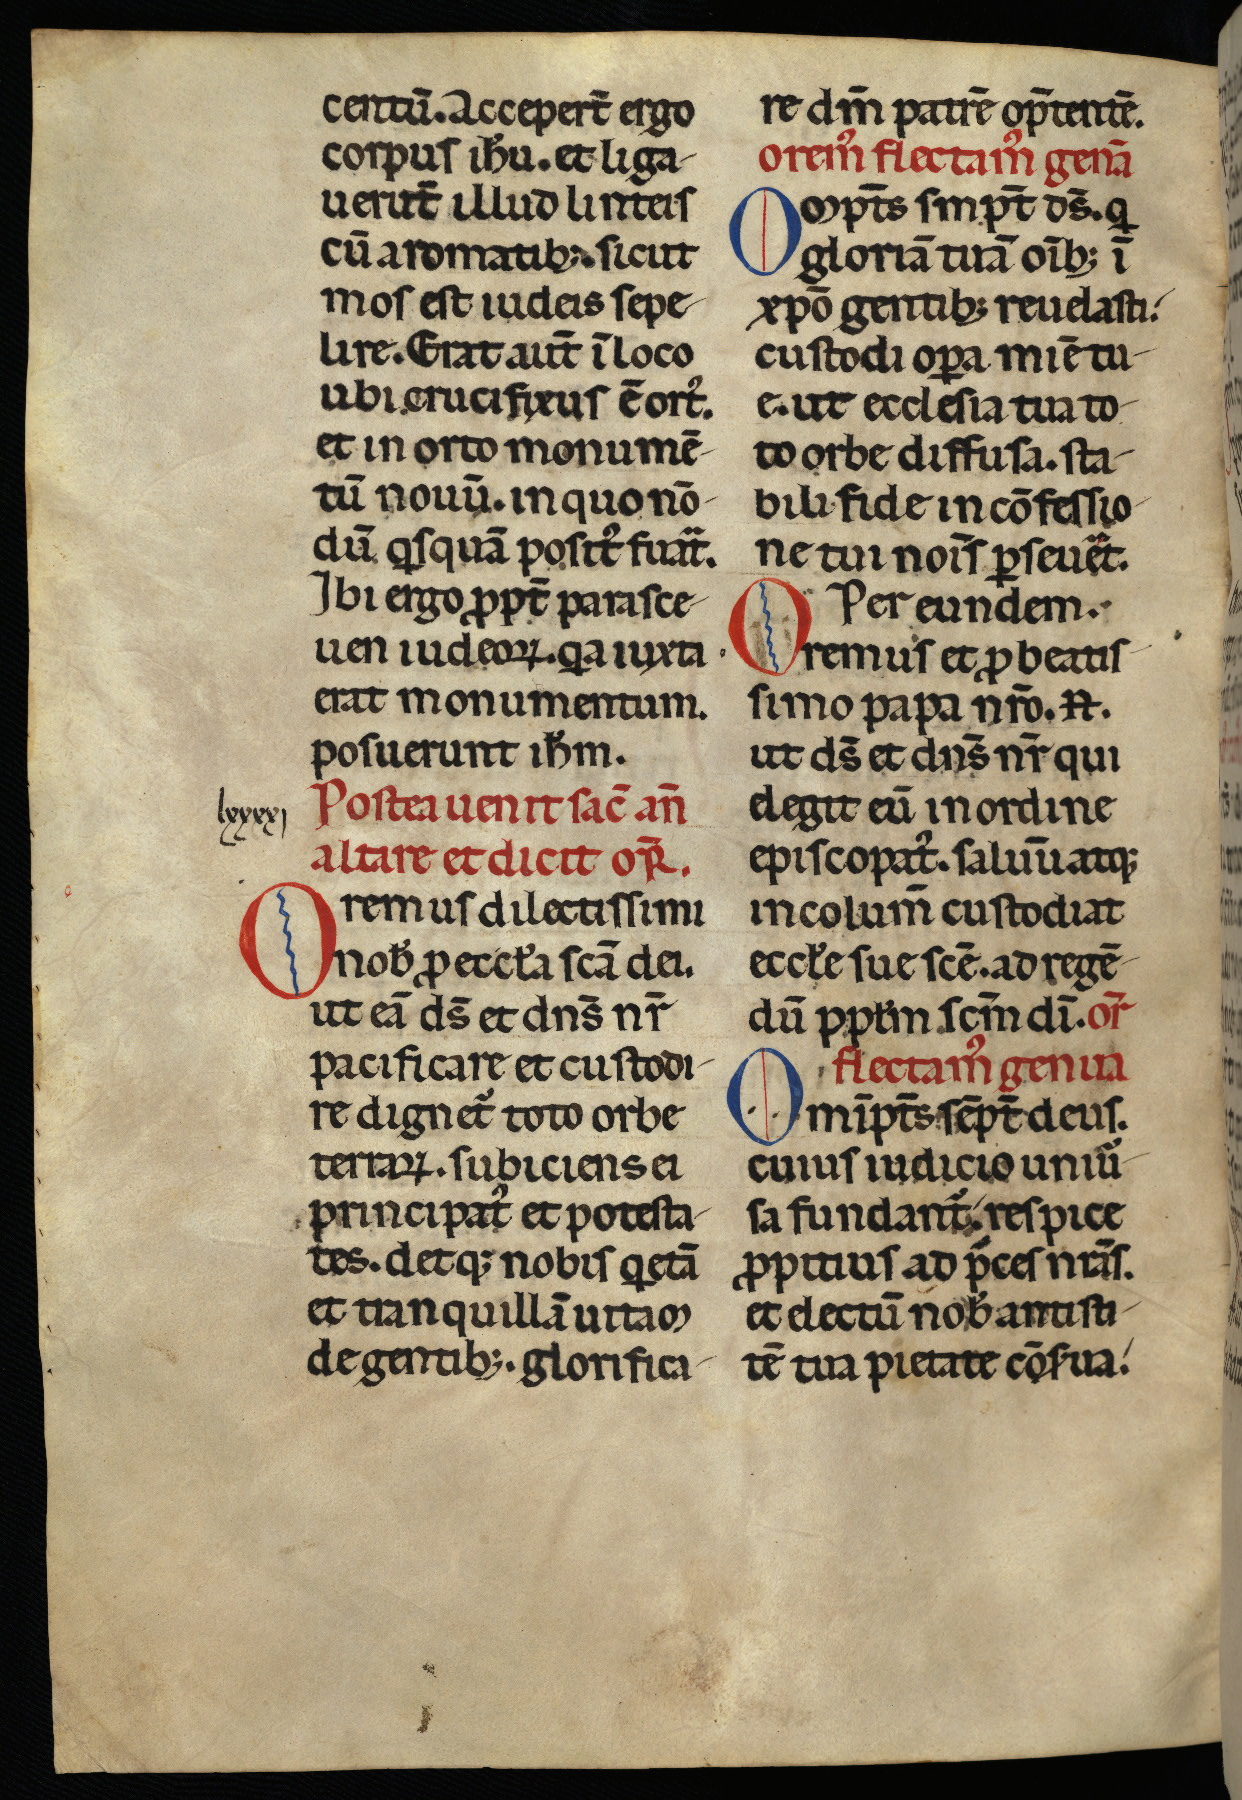 centū. Accepert̄ ergo
corpus ih̄u. et liga-
uerūt illud linteis
cū aromatib;. sicut
mos est iudeis sepe-
lire. Erat aut̄ ī loco
ubi crucifixus ē ort᷒.
et in orto monumē-
tū nouū. in quo nō-
dū qsquā posit᷒ fuat̄.
Ibi ergo ꝓpt̄ parasce-
uen iudeoꝝ. qa iuxta
erat monumentum.
posuerunt ih̄m.
lxxxxj
Postea uenit sac̄ an̄
altare et dicit oꝶ.
Oremus dilectissimi
nob̄ ꝓ eccl̄a sc̄a dei.
ut eā ds̄ et dn̄s nr̄
pacificare et custodi-
re dignet᷑ toto orbe
terraꝝ. subiciens ei
principat᷒ et potesta-
tes. detq; nobis qetā
et tranquillā uitam
degentib;. glorifica-
re dm̄ patrē op̄tentē.
orem᷒ flectam᷒ genā
Omp̄ts smpt̄ ds̄. q
gloriā tuā oīb; ī
xpō gentib; reuelasti.
custodi oꝑa miē tu-
e. ut ecclesia tua to-
to orbe diffusa. sta-
bili fide in cōfessio-
ne tui noīs ꝑseuēt.
Per eundem.
Oremus et ꝓ beatis-
simo papa nr̄o. N.
ut ds̄ et dn̄s nr̄ qui
elegit eū in ordine
episcopat᷒. saluū atq;
incolum̄ custodiat
eccl̄e sue scē. ad regē-
dū ppl̄m sc̄m dī. or̄
flectam᷒ genua
Omīpt̄s sēpt̄ deus.
cuius iudicio uniū-
sa fundant᷑. respice
ꝓpitius ad p̄ces nrās.
et electū nob̄ antisti-
tē tua pietate cōserua.